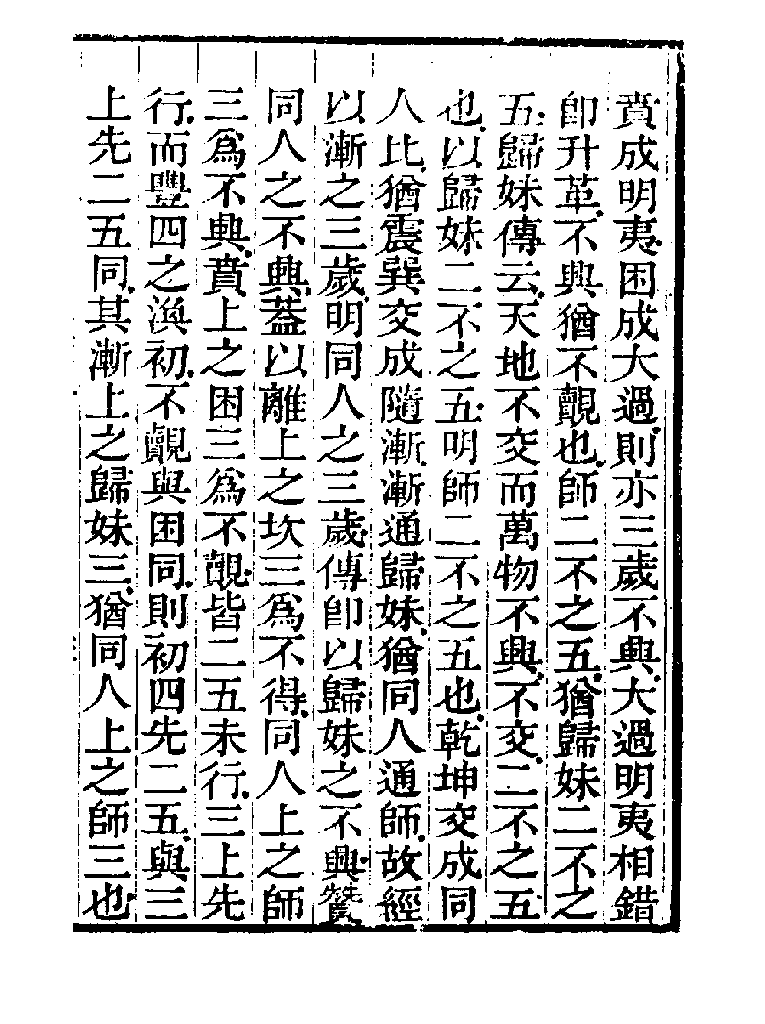 賁成明夷困成大過則亦三歲不興大過明夷相錯
卽升革不興猶不覿也師二不之五猶歸妹二不之
五歸妹傳云天地不交而萬物不興不交二不之五
也以歸妹二不之五明師二不之五也乾坤交成同
人比猶震巽交成隨漸漸通歸妹猶同人通師故經
以漸之三歲明同人之三歲傳卽以歸妹之不興贊
同人之不興葢以離上之坎三爲不得同人上之師
三爲不興賁上之困三爲不覿皆二五未行三上先
行而豐四之渙初不覿與困同則初四先二五與三
上先二五同其漸上之歸妹三猶同人上之師三也